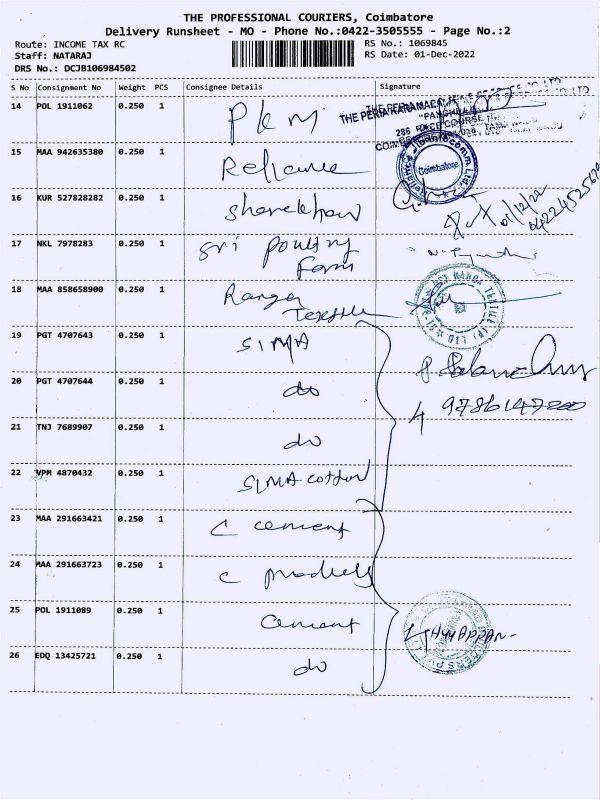 THE PROFESSIONAL COURIERS, Coimbatore
Delivery Runsheet - MO - Phone No.:0422-3505555 - Page No.:2
Route: INCOME TAX RC
RS No.: 1069845
Staff: NATARAJ
RS Date: 01-Dec-2022
DRS No.: DCJB106984502
S No Consignment No Weight PCS Consignee Details Signature
14 POL 1911062 0.250 1 PKM
THE PERIA KARAMALAI
"PANCHRATN
286 RACE COURSE
15 MAA 942635380 0.250 1 Reliance
Reliance Jio Infocomm Ltd. Coimbatore
16 KUR 527828282 0.250 1 Sharekhan
01/12/22
17 NKL 7978283 0.250 1 Sri Poultry
Farm
18 MAA 858658900 0.250 1 Ranga
Textile
SRI RANGA TEXTILE (P) LTD
19 PGT 4707643 0.250 1 SIMA
20 PGT 4707644 0.250 1 do
4 9786147200
21 TNJ 7689907 0.250 1 do
22 VPM 4870432 0.250 1 SIMA cotton
23 MAA 291663421 0.250 1 C cement
24 MAA 291663723 0.250 1 C products
25 POL 1911089 0.250 1 Cement
26 EDQ 13425721 0.250 1 do